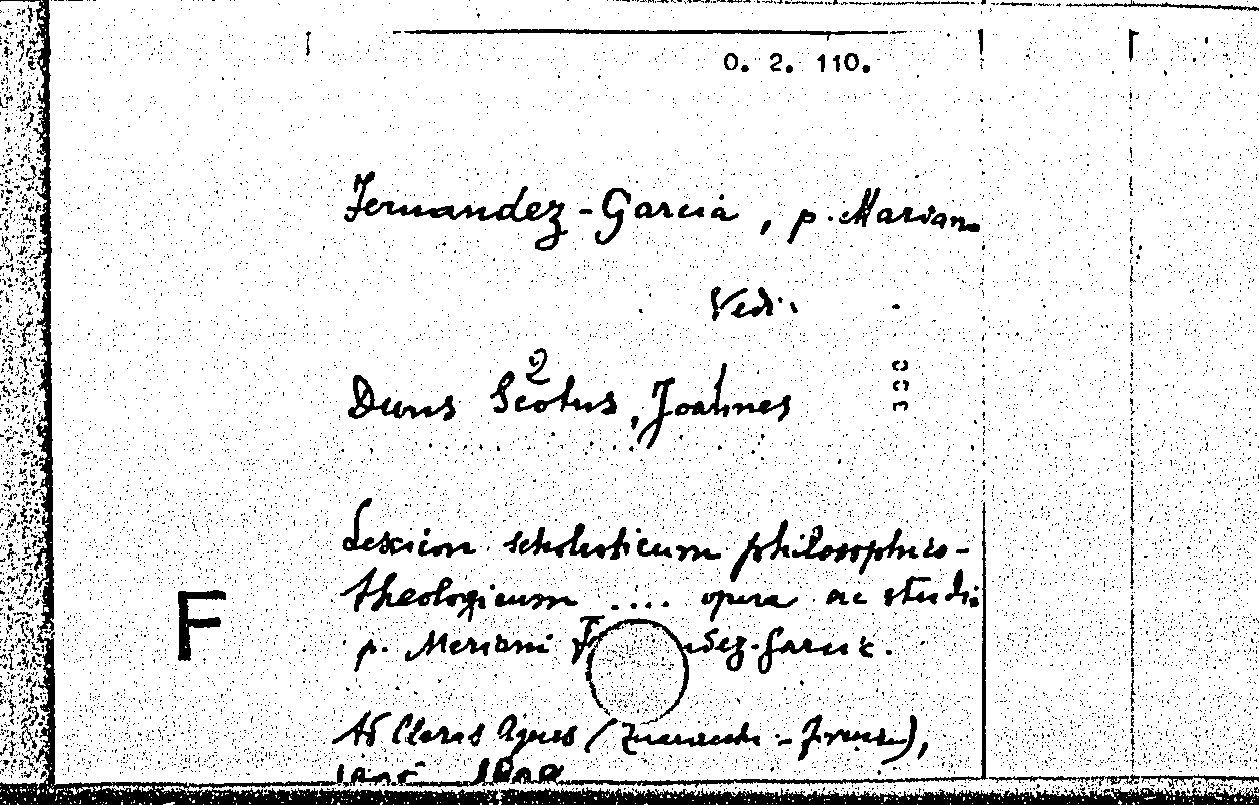 O. 2. 110.
Fernandez-Garcia, p. Mariano
Vedi
2
Duns Scotus, Joannes
Lexicon scholasticum philosophico-
theologicum .... opera ac studio
p. Mariani F ndez-Garcia.
Ad Claras Aquas (Quaracchi - Firenze),
F